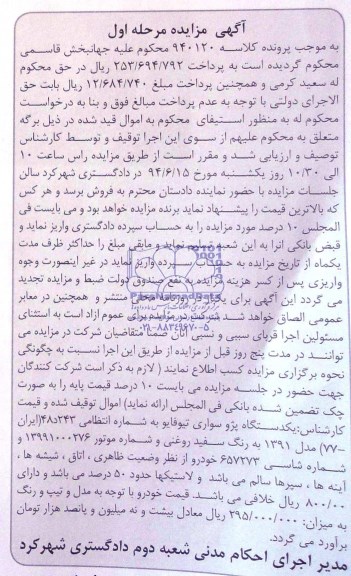 آگهی مزایده مرحله اول
به موجب پرونده کلاسه ۹۴۰۱۲۰ محکوم علیه جهانبخش قاسمی
محکوم گردیده است به پرداخت ۲۵۳/۶۹۴/۷۹۲ ریال در حق محکوم
له سعید کرمی و همچنین پرداخت مبلغ ۱۲/۶۸۴/۷۴۰ ریال بابت حق
الاجرای دولتی با توجه به عدم پرداخت مبالغ فوق و بنا به درخواست
محکوم له به منظور استیفای محکوم به اموال قید شده در ذیل برگه
متعلق به محکوم علیهم از سوی این اجرا توقیف و توسط کارشناس
توصیف و ارزیابی شد و مقرر است از طریق مزایده راس ساعت ۱۰
الی ۱۰/۳۰ روز یکشنبه مورخ ۹۴/۶/۱۵ در دادگستری شهرکرد سالن
جلسات مزایده با حضور نماینده دادستان محترم به فروش برسد و هر کس
که بالاترین قیمت را پیشنهاد نماید برنده مزایده خواهد بود و می بایست فی
المجلس ۱۰ درصد مورد مزایده را به حساب سپرده دادگستری واریز نماید و
قبض بانکی انرا به این شعبه تسلیم نماید و مابقی مبلغ را حداکثر ظرف مدت
یکماه از تاریخ مزایده به حساب سپرده واریز نماید در غیر اینصورت وجوه
واریزی پس از کسر هزینه مزایده به نفع صندوق دولت ضبط و مزایده تجدید
می گردد این آگهی برای یکبار در روزنامه محلی منتشر و همچنین در معابر
عمومی الصاق خواهد شد شرکت در مزایده برای عموم ازاد است به استثنای
مسئولین اجرا قربای سببی و نسبی آنان ضمنا متقاضیان شرکت در مزایده می
توانند در مدت پنج روز قبل از مزایده از طریق این اجرا نسبت به چگونگی
نحوه برگزاری مزایده کسب اطلاع نمایند ( لازم به ذکر است شرکت کنندگان
جهت حضور در جلسه مزایده می بایست ۱۰ درصد قیمت پایه را به صورت
چک تضمین شده بانکی فی المجلس ارائه نماید) اموال توقیف شده و قیمت
کارشناس:یکدستگاه پژو سواری تیوفایو به شماره انتظامی ۲۴۳د۴۸(ایران
-۷۷) مدل ۱۳۹۱ به رنگ سفید روغنی و شماره موتور ۱۳۹۹۱۰۰۰۲۷۶ و
شماره شاسی ۶۵۷۲۷۳ خودرو از نظر وضعیت ظاهری ، اتاق ، شیشه ها ،
آینه ها ، سپرها سالم می باشد و لاستیکها حدود ۵۰ درصد می باشد و دارای
۸۰۰/۰۰ ریال خلافی می باشد. قیمت خودرو با توجه به مدل و تیپ و رنگ
به میزان: ۲۹۵/۰۰۰/۰۰۰ ریال معادل بیست و نه میلیون و پانصد هزار تومان
برآورد می گردد.
مدیر اجرای احکام مدنی شعبه دوم دادگستری شهرکرد
۰۲۱-۸۸۳۴۹۶۷۰-۵